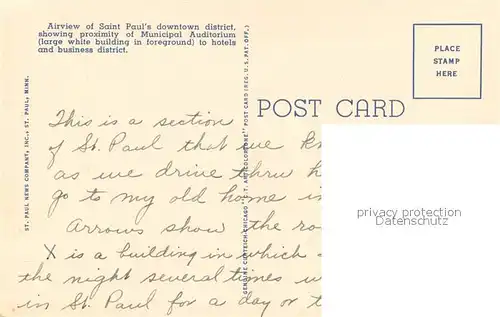 Airview of Saint Paul's downtown district,
showing proximity of Municipal Auditorium
(large white building in foreground) to hotels
and business district.
PLACE
STAMP
HERE
POST CARD
ST. PAUL NEWS COMPANY, INC., ST. PAUL, MINN.
GENUINE CURTEICH-CHICAGO "C.T. ART-COLORTONE" POST CARD (REG. U.S. PAT. OFF.)
This is a section
of St. Paul that we kn
as we drive thru h
go to my old home in
Arrows show the ro
X is a building in which
the night several times w
in St. Paul for a day or t
privacy protection
Datenschutz